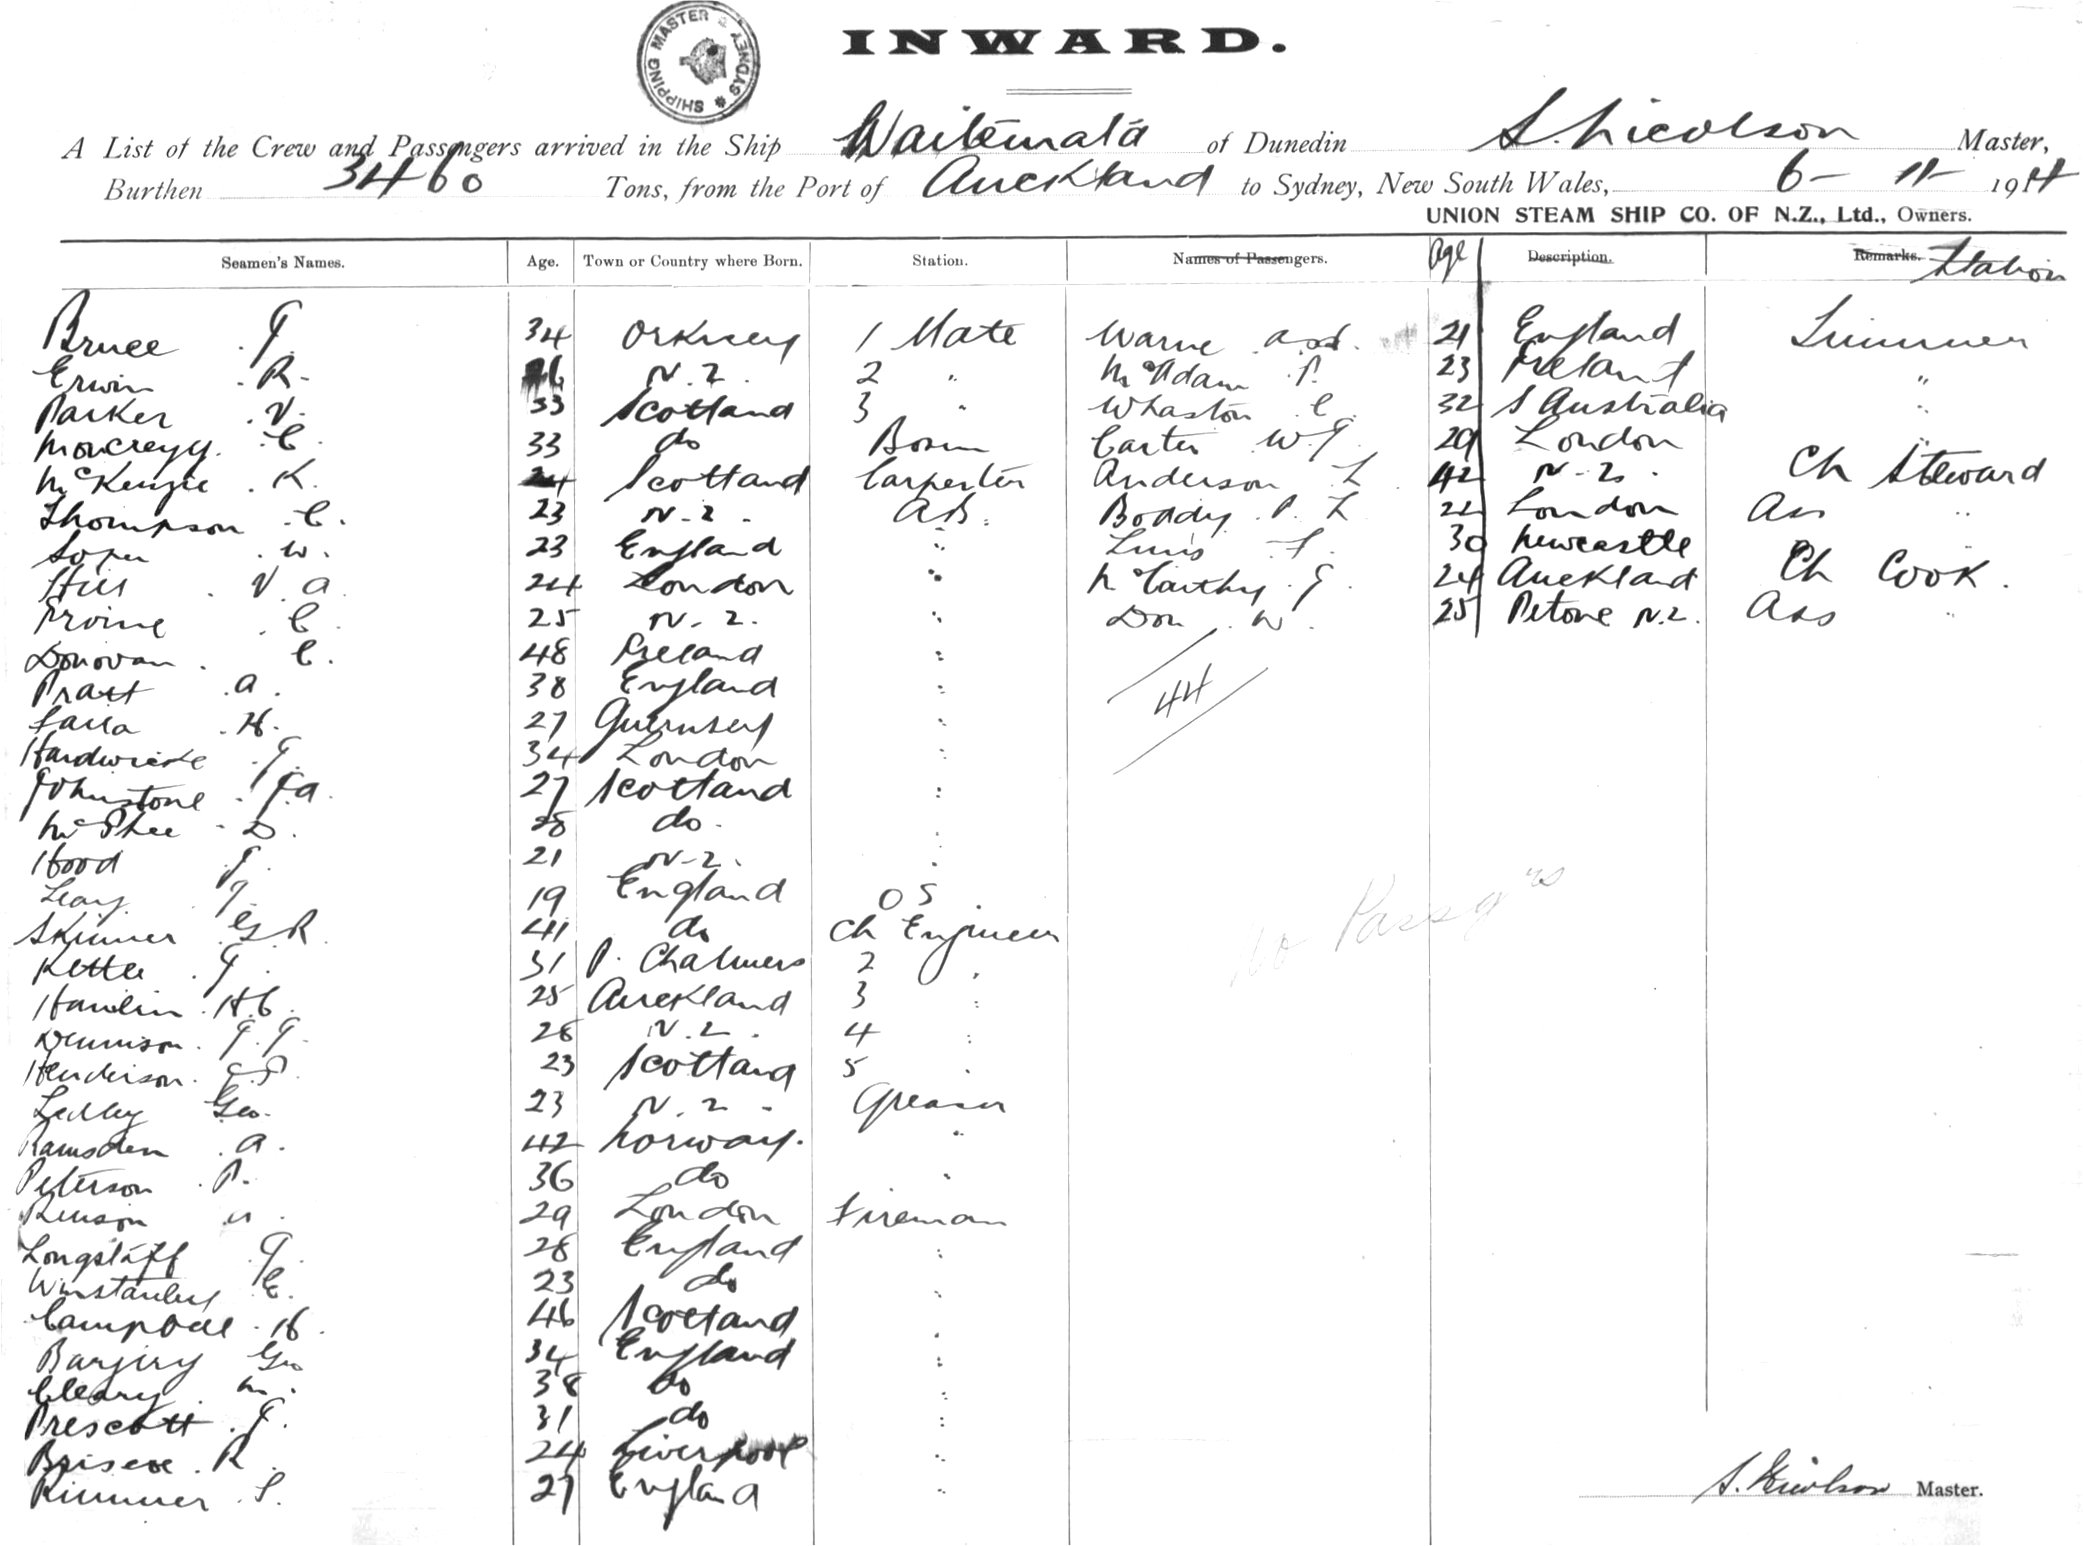 SHIPPING MASTER SYDNEY
INWARD.
A List of the Crew and Passengers arrived in the Ship Waitemata of Dunedin S. Nicolson Master,
Burthen 3460 Tons, from the Port of Auckland to Sydney, New South Wales, 6-11-1914
UNION STEAM SHIP CO. OF N.Z., Ltd., Owners.
Seamen's Names. Age. Town or Country where Born. Station. Names of Passengers. Age Description. Remarks. Station
Bruce J. 34 Orkney 1 Mate Warne 21 England Trimmer
Erwin R. 26 N.Z. 2 " McAdam P. 23 Ireland "
Parker V. 33 Scotland 3 " Whaston C. 32 S Australia "
C. 33 do Bosun Carter W.J. 29 London "
McKenzie K. 24 Scotland Carpenter Anderson L 42 N.Z. Ch Steward
Thompson C. 23 N.Z. AB. Boddy P. L London Ass "
Soper W. 23 England " 30 Newcastle
Hill V. A 24 London " McCarthy J. 24 Auckland Ch Cook.
Irvine C. 25 N.Z. " Don W. 25 Petone N.Z. Ass "
Donovan C. 48 Ireland "
Pratt A. 38 England "
Falla H. 27 Guernsey "
44
Hardwicke J. 34 London "
Johnstone J.A. 27 Scotland "
McPhee D. 28 do "
Hood J. 21 N.Z. "
Leary J. 19 England OS
Skinner G R. 41 do Ch Engineer
Kettle J. 31 P. Chalmers 2 "
No Passgrs
Hamlin H.C. 25 Auckland 3 "
Dennison J.J. 28 N.Z. 4 "
Henderson 23 Scotland 5 "
Ledley Geo. 23 N.Z. Greaser
Ramsden A. 42 Norway. "
Peterson P. 36 do "
29 London Fireman
Longstaff J. 28 England "
Winstanley E. 23 do "
Campbell H. 46 Scotland "
Geo 34 England "
Cleary M. 38 do "
Prescott J. 31 do "
Briscoe R. 24 Liverpool "
Rimmer S. 27 England "
S. Nicolson Master.